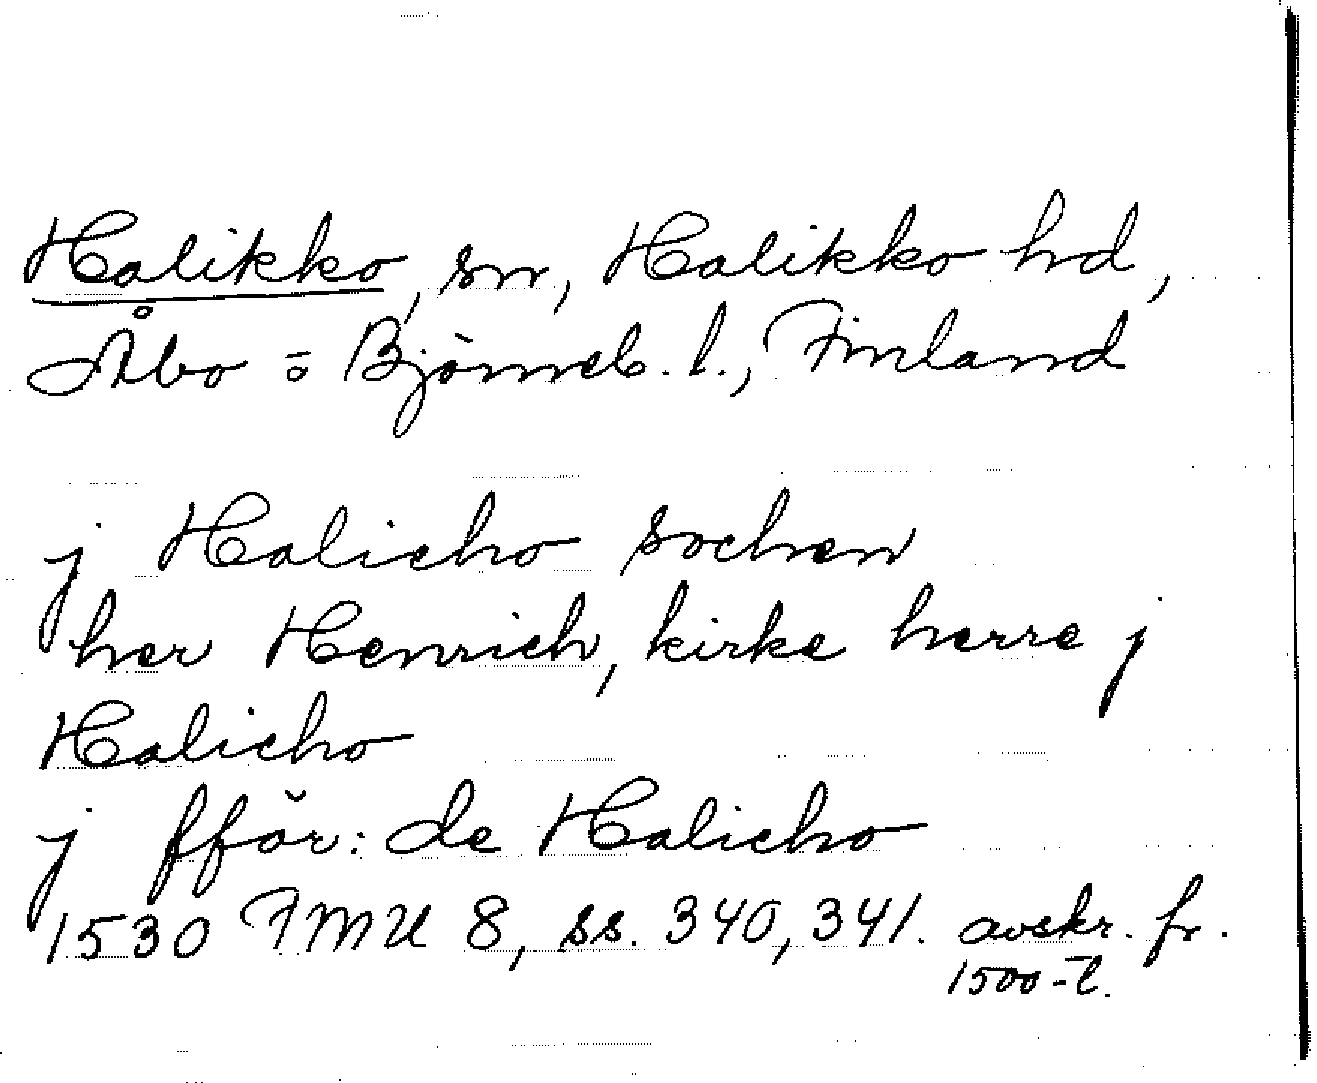 Halikko, sn, Halikko hd,
Åbo = Björneb. l., Finland
j Halicho sochen
her Henrich, kirke herre j
Halicho
j fför: de Halicho
1530 FMU 8, ss. 340, 341. avskr. fr.
1500-t.